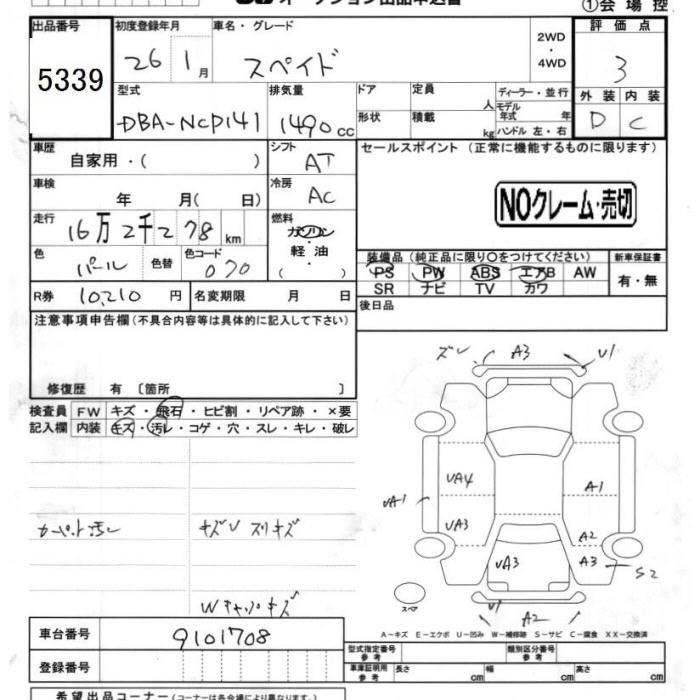 オークション出品申込書
①会場控
出品番号 初度登録年月 車名・グレード 2WD・4WD 評価点
5339 26 1月 スペイド 3
型式 排気量 ドア 定員 人 ディーラー・並行 外装 内装
DBA-NCP141 1490cc 形状 積載 kg モデル年式 年 ハンドル 左・右 D C
車歴 自家用・( ) シフト AT セールスポイント（正常に機能するものに限ります）
車検 年 月( 日) 冷房 AC NOクレーム・売切
走行 16万2千278km 燃料 ガソリン・軽油 ( )
色 パール 色替 色コード 070 装備品（純正品に限り○をつけてください） 新車保証書
PS PW ABS エアB AW 有・無
SR ナビ TV カワ
R券 10,210円 名変期限 月 日 後日品
注意事項申告欄（不具合内容等は具体的に記入して下さい）
修復歴 有〔箇所 〕
検査員 FW キズ・飛石・ヒビ割・リペア跡・×要
記入欄 内装 キズ・汚レ・コゲ・穴・スレ・キレ・破レ
ズレ A3 U1
UA4 A1
UA1
UA3 A2
UA3 A3 S2
スペア U1 A2
カーペット汚レ スリキズ
Wキャップキズ
A－キズ E－エクボ U－凹み W－補修跡 S－サビ C－腐食 XX－交換済
車台番号 9101708
登録番号
型式指定番号 参考 類別区分番号 参考
車庫証明用 参考 長さ cm 幅 cm 高さ cm
希望出品コーナー（コーナーは各会場により異なります）